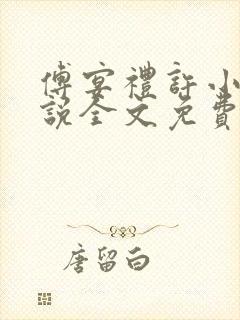 傅宴禮許小
說全文免費
唐留白